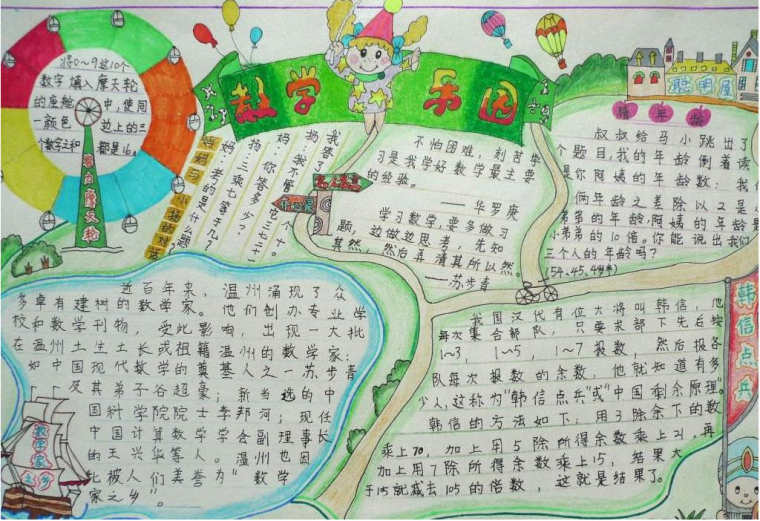 数学乐园
将0~9这10个
数字填入摩天轮
的座舱中,使同
一颜色边上的三
个数字之和都是16。
摩天轮
妈:考的是什么题
妈:三乘七等于几?
妈:你答多少?
我答了
不怕困难,刻苦学
习是我学好数学最主要
的经验。
——华罗庚
学习数学,要多做习
题,边做边思考,先知
其然,然后弄清其所以然。
——苏步青
聪明屋
猜年龄
叔叔给马小跳出了
个题目,我的年龄倒着读
是你阿姨的年龄数;我
俩年龄之差除以2是
小弟弟的年龄,阿姨的年龄是
小弟弟的10倍。你能说出我们
三个人的年龄吗?
(54、45、4岁半)
近百年来,温州涌现了众
多卓有建树的数学家。他们创办专业学
校和数学刊物,受此影响,出现一大批
在温州土生土长或祖籍温州的数学家:
如中国现代数学的奠基人之一苏步青
及其弟子谷超豪;新当选的中
国科学院院士李邦河;现任
中国计算数学学会副理事长
的王兴华等人。温州也因
此被人们美誉为"数学
家之乡"。
数学家之乡
我国汉代有位大将叫韩信,他
每次集合部队,只要求部下先后按
1~3,1~5,1~7报数,然后报各
队每次报数的余数,他就知道有多
少人,这称为"韩信点兵"或"中国剩余原理"。
韩信的方法如下:用3除余下的数
乘上70,加上用5除所得余数乘上21,再
加上用7除所得余数乘上15,结果大
于15就减去105的倍数,这就是结果了。
韩信点兵